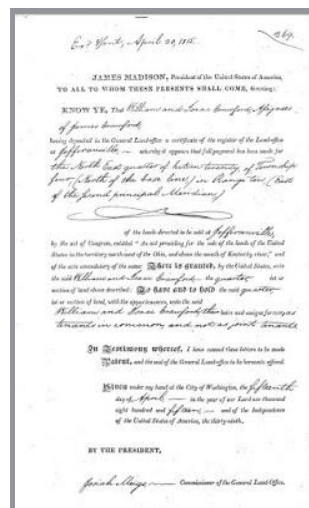 April 20, 1815.
269.
JAMES MADISON, President of the United States of America,
TO ALL TO WHOM THESE PRESENTS SHALL COME, Greeting:
KNOW YE, That William and Isaac Crawford, Assignees
of James Crawford
having deposited in the General Land-office a certificate of the register of the Land-office
at Jeffersonville, whereby it appears that full payment has been made for
the North East quarter of Section twenty, of Township
four, (North of the base line,) in Range ten (East
of the second principal Meridian)
of the lands directed to be sold at Jeffersonville,
by the act of Congress, entitled "An act providing for the sale of the lands of the United
States in the territory north west of the Ohio, and above the mouth of Kentucky river," and
of the acts amendatory of the same There is granted, by the United States, unto
the said William and Isaac Crawford the quarter lot or
section of land above described: To have and to hold the said quarter
lot or section of land, with the appurtenances, unto the said
William and Isaac Crawford, their heirs and assigns for ever, as
tenants in common and not as joint tenants
In Testimony whereof, I have caused these letters to be made
Patent, and the seal of the General Land Office to be hereunto affixed.
Given under my hand at the City of Washington, the fifteenth
day of April in the year of our Lord one thousand
eight hundred and fifteen, and of the Independence
of the United States of America, the thirty-ninth.
BY THE PRESIDENT,
Josiah Meigs Commissioner of the General Land-Office.